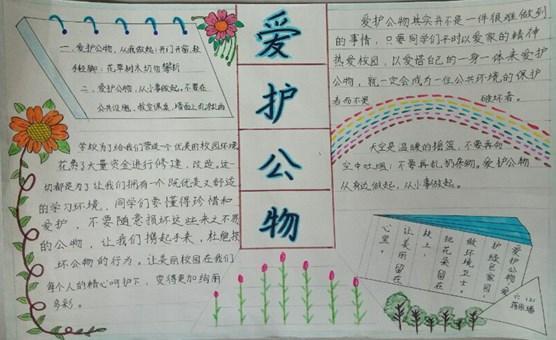 一、爱护公物，从我做起：开门开窗，轻
手轻脚；花草树木切勿攀折
二、爱护公物，从小事做起。不要在
公共设施、教室课桌、墙面上乱涂乱画
学校为了给我们营造一个优美的校园环境
花费了大量资金进行修建、改造。这一
切都是为了让我们拥有一个既优美又舒适
的学习环境。同学们要懂得珍惜和
爱护，不要随意损坏这些来之不易
的公物，让我们携起手来，杜绝损
坏公物的行为。让美丽校园在我们
每个人的精心呵护下，变得更加绚丽
多彩。
爱
护
公
物
爱护公物其实并不是一件很难做到
的事情，只要同学们平时以爱家的精神
热爱校园，以爱惜自己的一身一体来爱护
公物，就一定会成为一位公共环境的保护
者而不是破坏者。
天空是温暖的摇篮，不要再向
空中吐烟；不要再乱扔杂物。爱护公物
从身边做起，从小事做起。
爱护公物爱
护绿色家园，
做环境卫士。
把花朵留在
枝上，
让美丽留在
心里。
六（3）